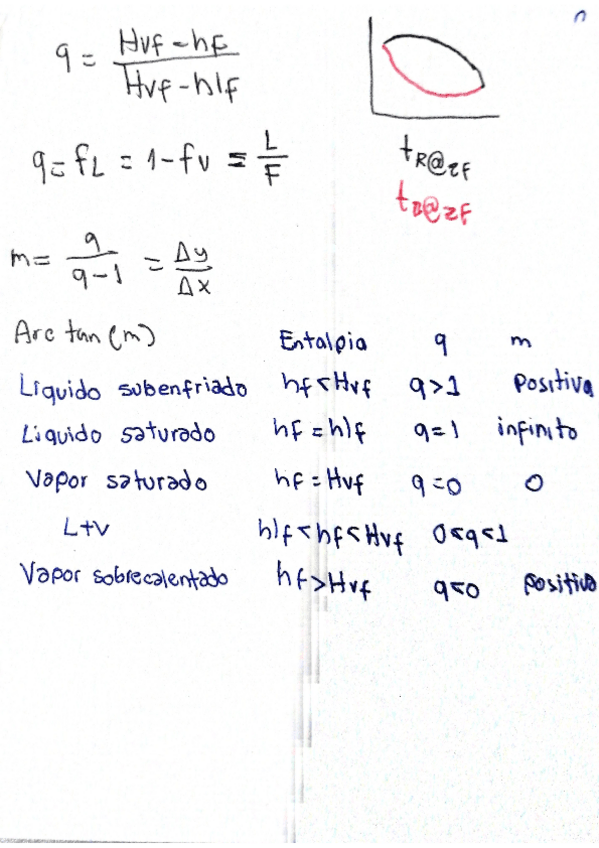 q = Hvf - hf / Hvf - hlf
t R@zf
q = fL = 1 - fv = L / F
t B@zF
m = q / q - 1 = Δy / Δx
Arc tan (m) Entalpia q m
Liquido subenfriado hf < Hvf q > 1 Positiva
Liquido saturado hf = hlf q = 1 infinito
Vapor saturado hf = Hvf q = 0 0
L+v hlf < hf < Hvf 0 < q < 1
Vapor sobrecalentado hf > Hvf q < 0 Positiva